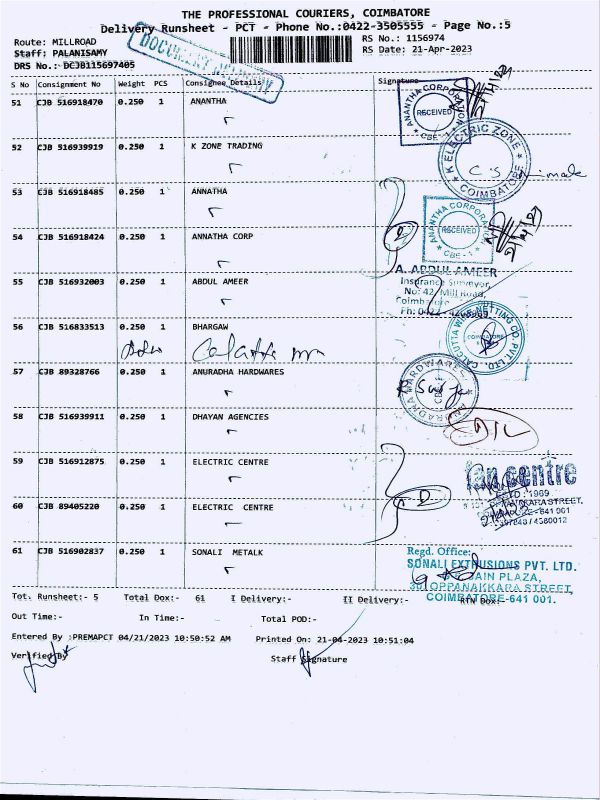 THE PROFESSIONAL COURIERS, COIMBATORE
Delivery Runsheet - PCT - Phone No.:0422-3505555 - Page No.:5
Route: MILLROAD
RS No.: 1156974
Staff: PALANISAMY
RS Date: 21-Apr-2023
DRS No.: DCJB115697405
S No Consignment No Weight PCS Consignee Details Signature
51 CJB 516918470 0.250 1 ANANTHA
ANANTHA CORPORATION
RECEIVED
CBE
52 CJB 516939919 0.250 1 K ZONE TRADING
K ELECTRIC ZONE
COIMBATORE
53 CJB 516918485 0.250 1 ANNATHA
ANANTHA CORPORATION
RECEIVED
CBE
54 CJB 516918424 0.250 1 ANNATHA CORP
55 CJB 516932003 0.250 1 ABDUL AMEER
A. ABDUL AMEER
Insurance Surveyor,
No: 42, Mill Road,
56 CJB 516833513 0.250 1 BHARGAW
CALCUTTA NETTING CO. PVT. LTD.
COIMBATORE
57 CJB 89328766 0.250 1 ANURADHA HARDWARES
ANURADHA HARDWARES
CBE
58 CJB 516939911 0.250 1 DHAYAN AGENCIES
59 CJB 516912875 0.250 1 ELECTRIC CENTRE
fan centre
ESTD : 1969
60 CJB 89405220 0.250 1 ELECTRIC CENTRE
D
61 CJB 516902837 0.250 1 SONALI METALK
Regd. Office:
SONALI EXTRUSIONS PVT. LTD.
JAIN PLAZA,
OPPANAKKARA STREET,
COIMBATORE-641 001.
Tot. Runsheet:- 5 Total Dox:- 61 I Delivery:- II Delivery:- RTN Dox:-
Out Time:- In Time:- Total POD:-
Entered By :PREMAPCT 04/21/2023 10:50:52 AM Printed On: 21-04-2023 10:51:04
Verified By Staff Signature